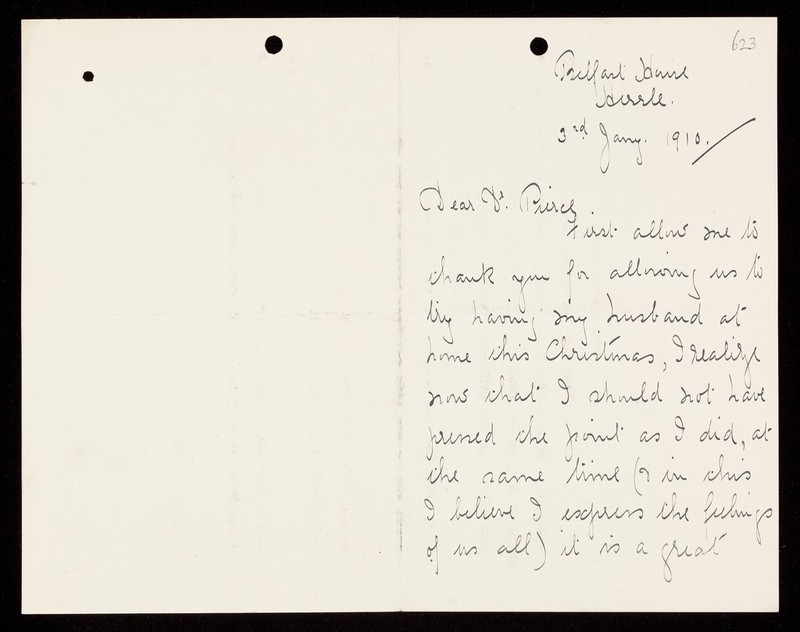 623
Belfast House
Hessle.
3rd Jany. 1910.
Dear Dr. Pierce
First allow me to
thank you for allowing us to
try having my husband at
home this Christmas, I realize
now that I should not have
pressed the point as I did, at
the same time (& in this
I believe I express the feelings
of us all) it is a great